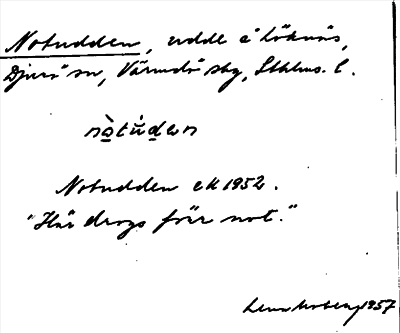 Notudden, udde å Löknäs,
Djurö sn, Värmdö skg, Sthlms. l.
nòtúden
Notudden ek 1952.
"Här drogs förr not."
1957